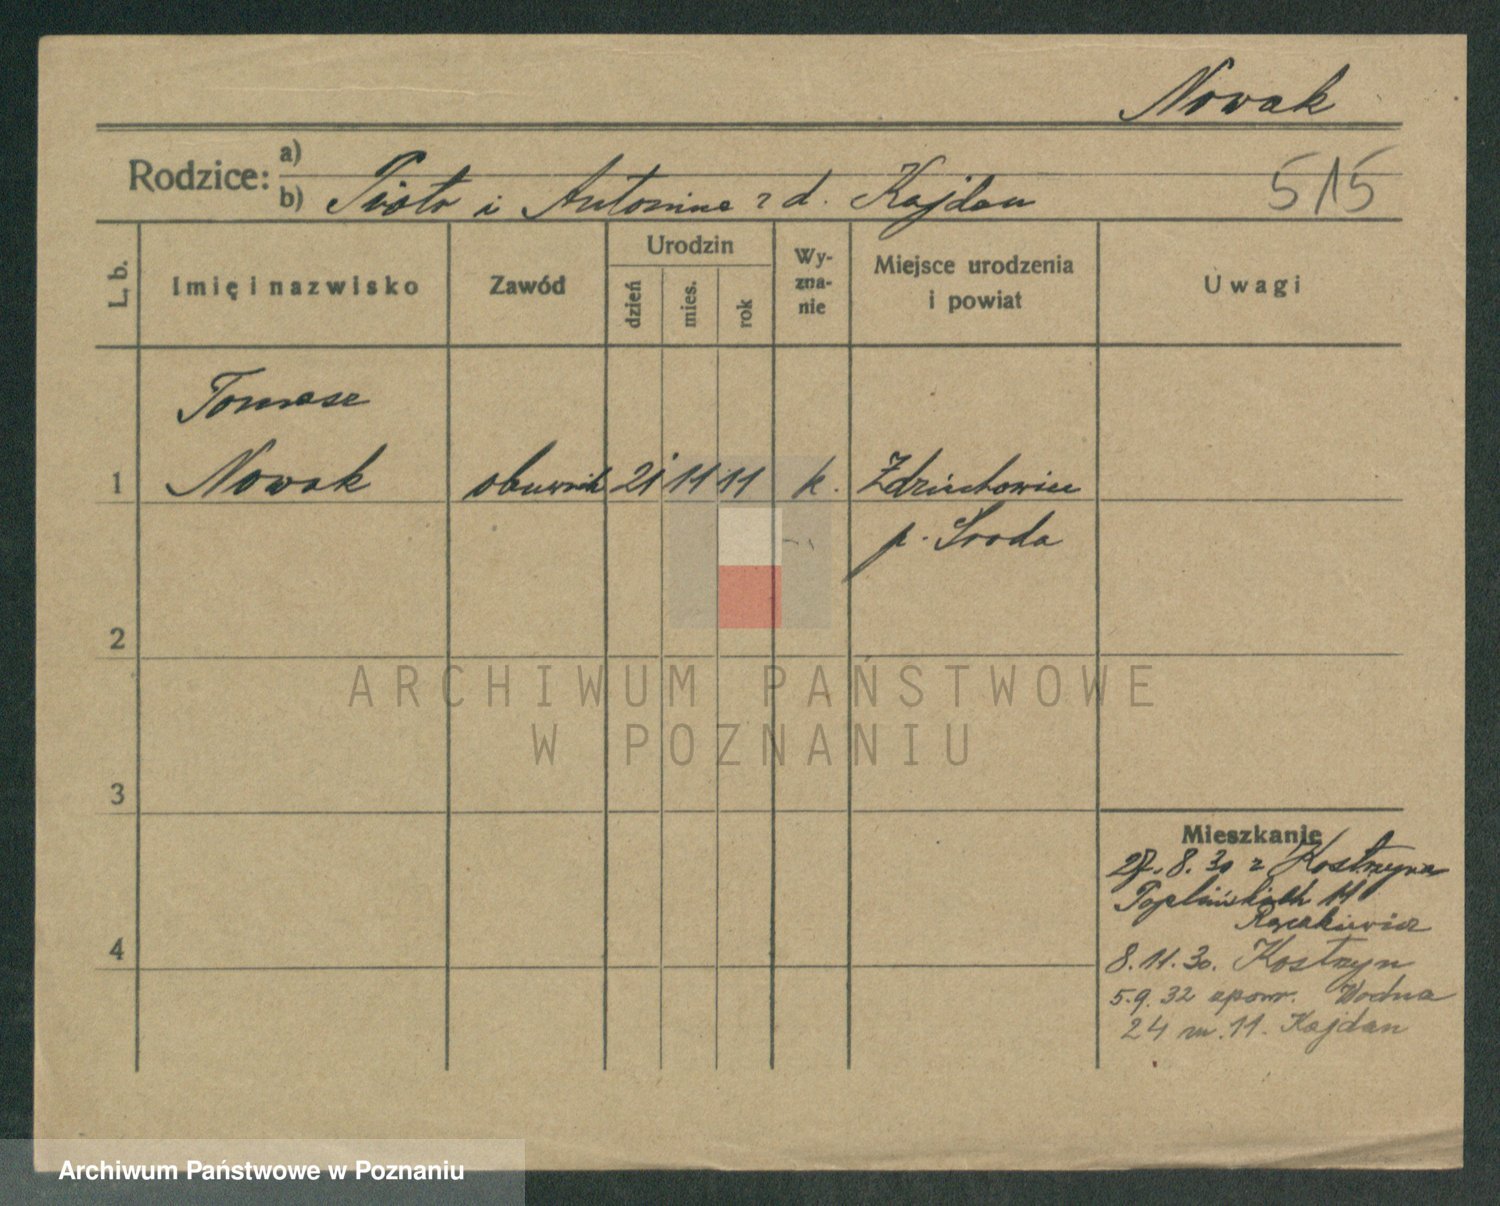 Nowak
Rodzice: a)
b) Piotr i Antonina z d. Kajdan
515
L. b.
Imię i nazwisko
Zawód
Urodzin
dzień
mies.
rok
Wy-
zna-
nie
Miejsce urodzenia
i powiat
Uwagi
Tomasz
1 Nowak obuwnik 21 11 11 k. Zdziechowice
p. Sroda
2
3
4
ARCHIWUM PAŃSTWOWE
W POZNANIU
Mieszkanie
27. 8. 30 z Kostrzyna
Poplińskich 11
8. 11. 30. Kostrzyn
5. 9. 32 zpow. Wodna
24 m. 11. Kajdan
Archiwum Państwowe w Poznaniu